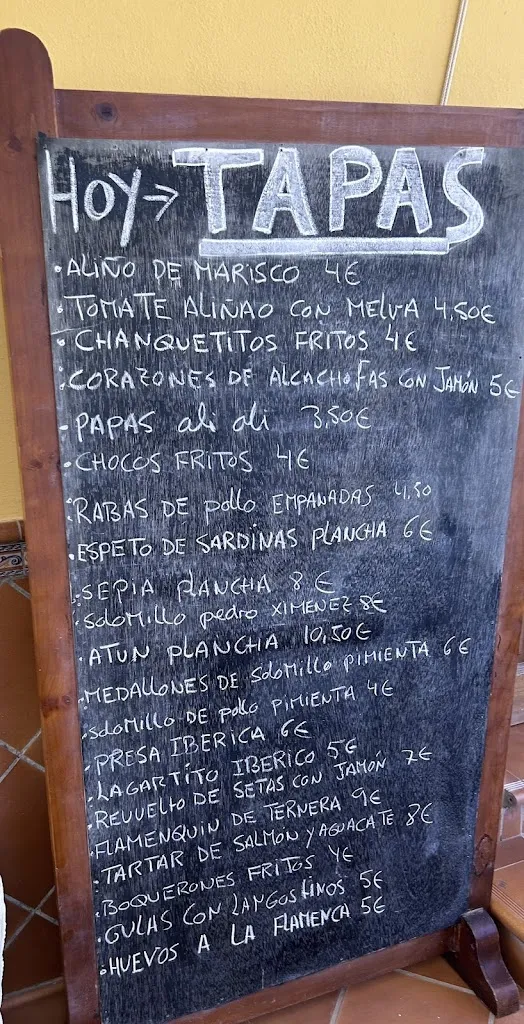 HOY → TAPAS
• ALIÑO DE MARISCO 4€
• TOMATE ALIÑAO CON MELVA 4,50€
• CHANQUETITOS FRITOS 4€
• CORAZONES DE ALCACHOFAS CON JAMÓN 5€
• PAPAS ali oli 3,50€
• CHOCOS FRITOS 4€
• RABAS DE pollo EMPANADAS 4,50
• ESPETO DE SARDINAS PLANCHA 6€
• SEPIA PLANCHA 8€
• SOLOMILLO pedro XIMENEZ 8€
• ATUN PLANCHA 10,50€
• MEDALLONES DE SOLOMILLO PIMIENTA 6€
• SOLOMILLO DE POLLO PIMIENTA 4€
• PRESA IBERICA 6€
• LAGARTITO IBERICO 5€
• REVUELTO DE SETAS CON JAMÓN 7€
• FLAMENQUIN DE TERNERA 9€
• TARTAR DE SALMÓN Y AGUACATE 8€
• BOQUERONES FRITOS 4€
• GULAS CON LANGOSTINOS 5€
• HUEVOS A LA FLAMENCA 5€